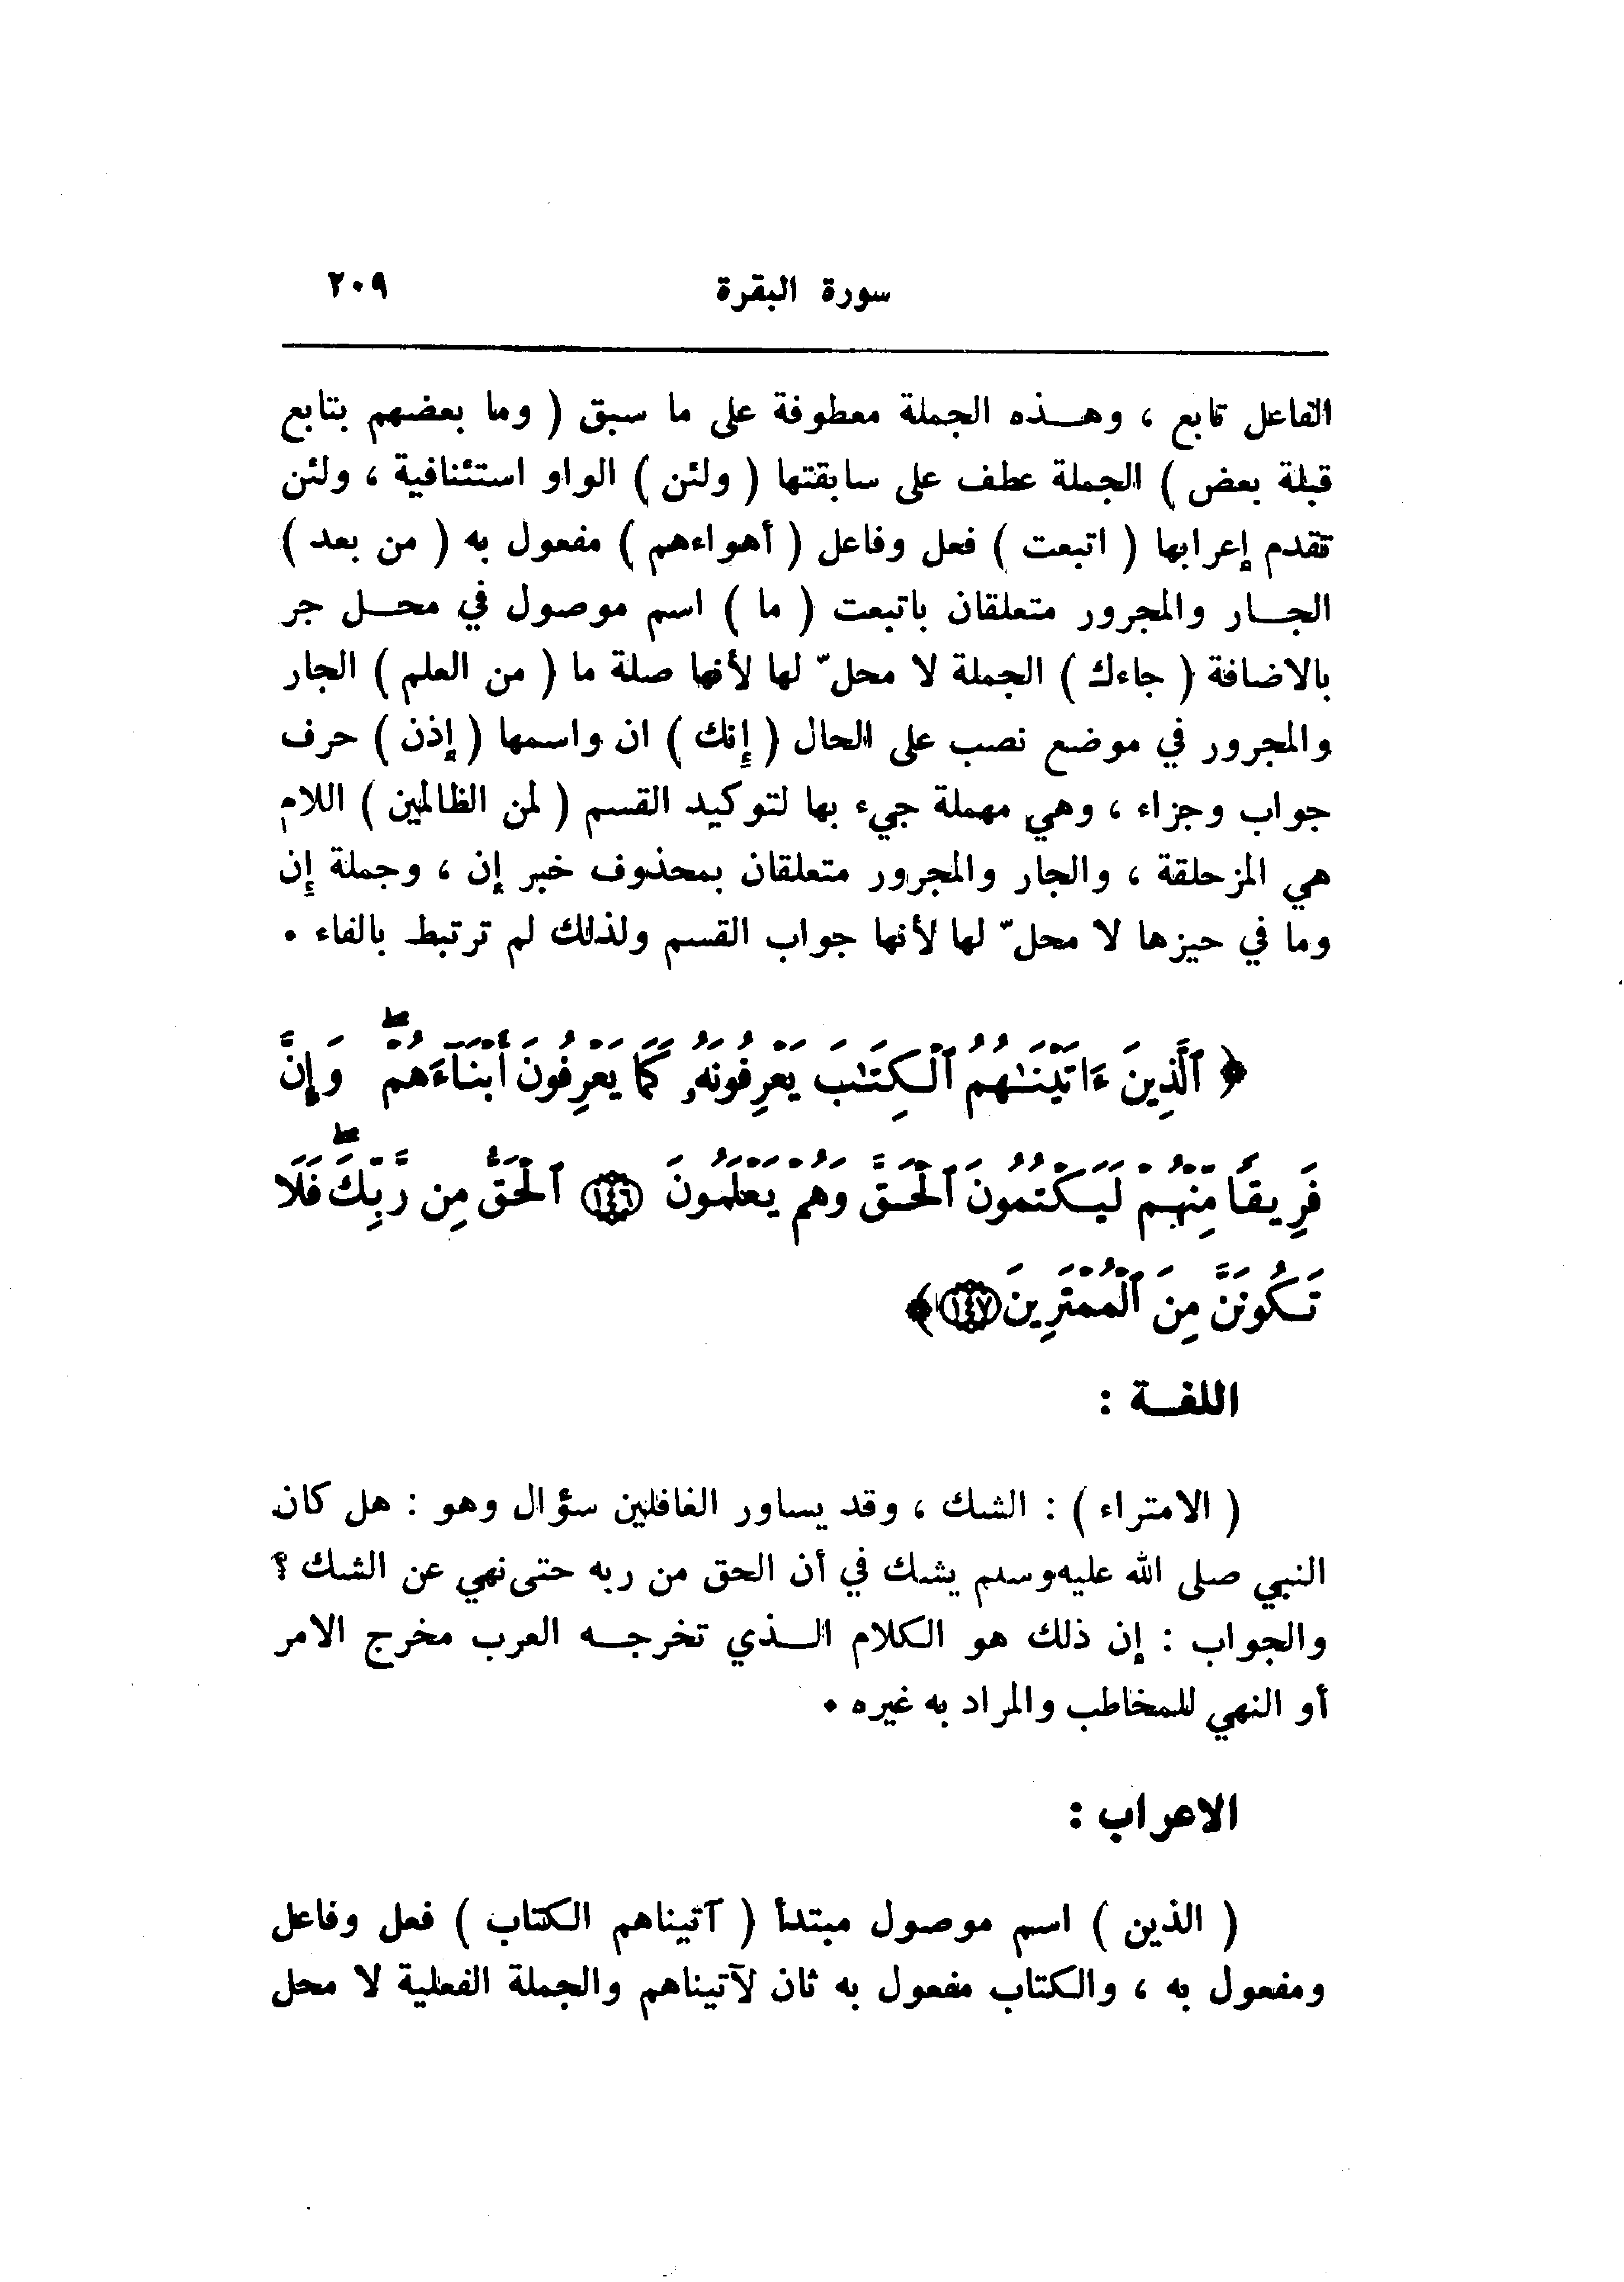 سورة البقرة ٢٠٩
الفاعل تابع ، وهـــذه الجملة معطوفة على ما سبق ( وما بعضهم بتابع
قبلة بعض ) الجملة عطف على سابقتها ( ولئن ) الواو استئنافية ، ولئن
تقدم إعرابها ( اتبعت ) فعل وفاعل ( أهواءهم ) مفعول به ( من بعد )
الجـــار والمجرور متعلقان باتبعت ( ما ) اسم موصول في محـــل جر
بالاضافة ( جاءك ) الجملة لا محلّ لها لأنها صلة ما ( من العلم ) الجار
والمجرور في موضع نصب على الحال ( إنك ) ان واسمها ( إذن ) حرف
جواب وجزاء ، وهي مهملة جيء بها لتوكيد القسم ( لمن الظالمين ) اللام
هي المزحلقة ، والجار والمجرور متعلقان بمحذوف خبر إن ، وجملة إن
وما في حيزها لا محلّ لها لأنها جواب القسم ولذلك لم ترتبط بالفاء .
﴿ ٱلَّذِينَ ءَاتَيْنَـٰهُمُ ٱلْكِتَـٰبَ يَعْرِفُونَهُۥ كَمَا يَعْرِفُونَ أَبْنَآءَهُمْۖ وَإِنَّ
فَرِيقًا مِّنْهُمْ لَيَكْتُمُونَ ٱلْحَقَّ وَهُمْ يَعْلَمُونَ ١٤٦ ٱلْحَقُّ مِن رَّبِّكَۖ فَلَا
تَكُونَنَّ مِنَ ٱلْمُمْتَرِينَ ١٤٧ ﴾
اللغـــة :
( الامتراء ) : الشك ، وقد يساور الغافلين سؤال وهو : هل كان
النبي صلى الله عليه وسلم يشك في أن الحق من ربه حتى نهي عن الشك ؟
والجواب : إن ذلك هو الكلام الـــذي تخرجـــه العرب مخرج الامر
أو النهي للمخاطب والمراد به غيره .
الاعراب :
( الذين ) اسم موصول مبتدأ ( آتيناهم الكتاب ) فعل وفاعل
ومفعول به ، والكتاب مفعول به ثان لآتيناهم والجملة الفعلية لا محل